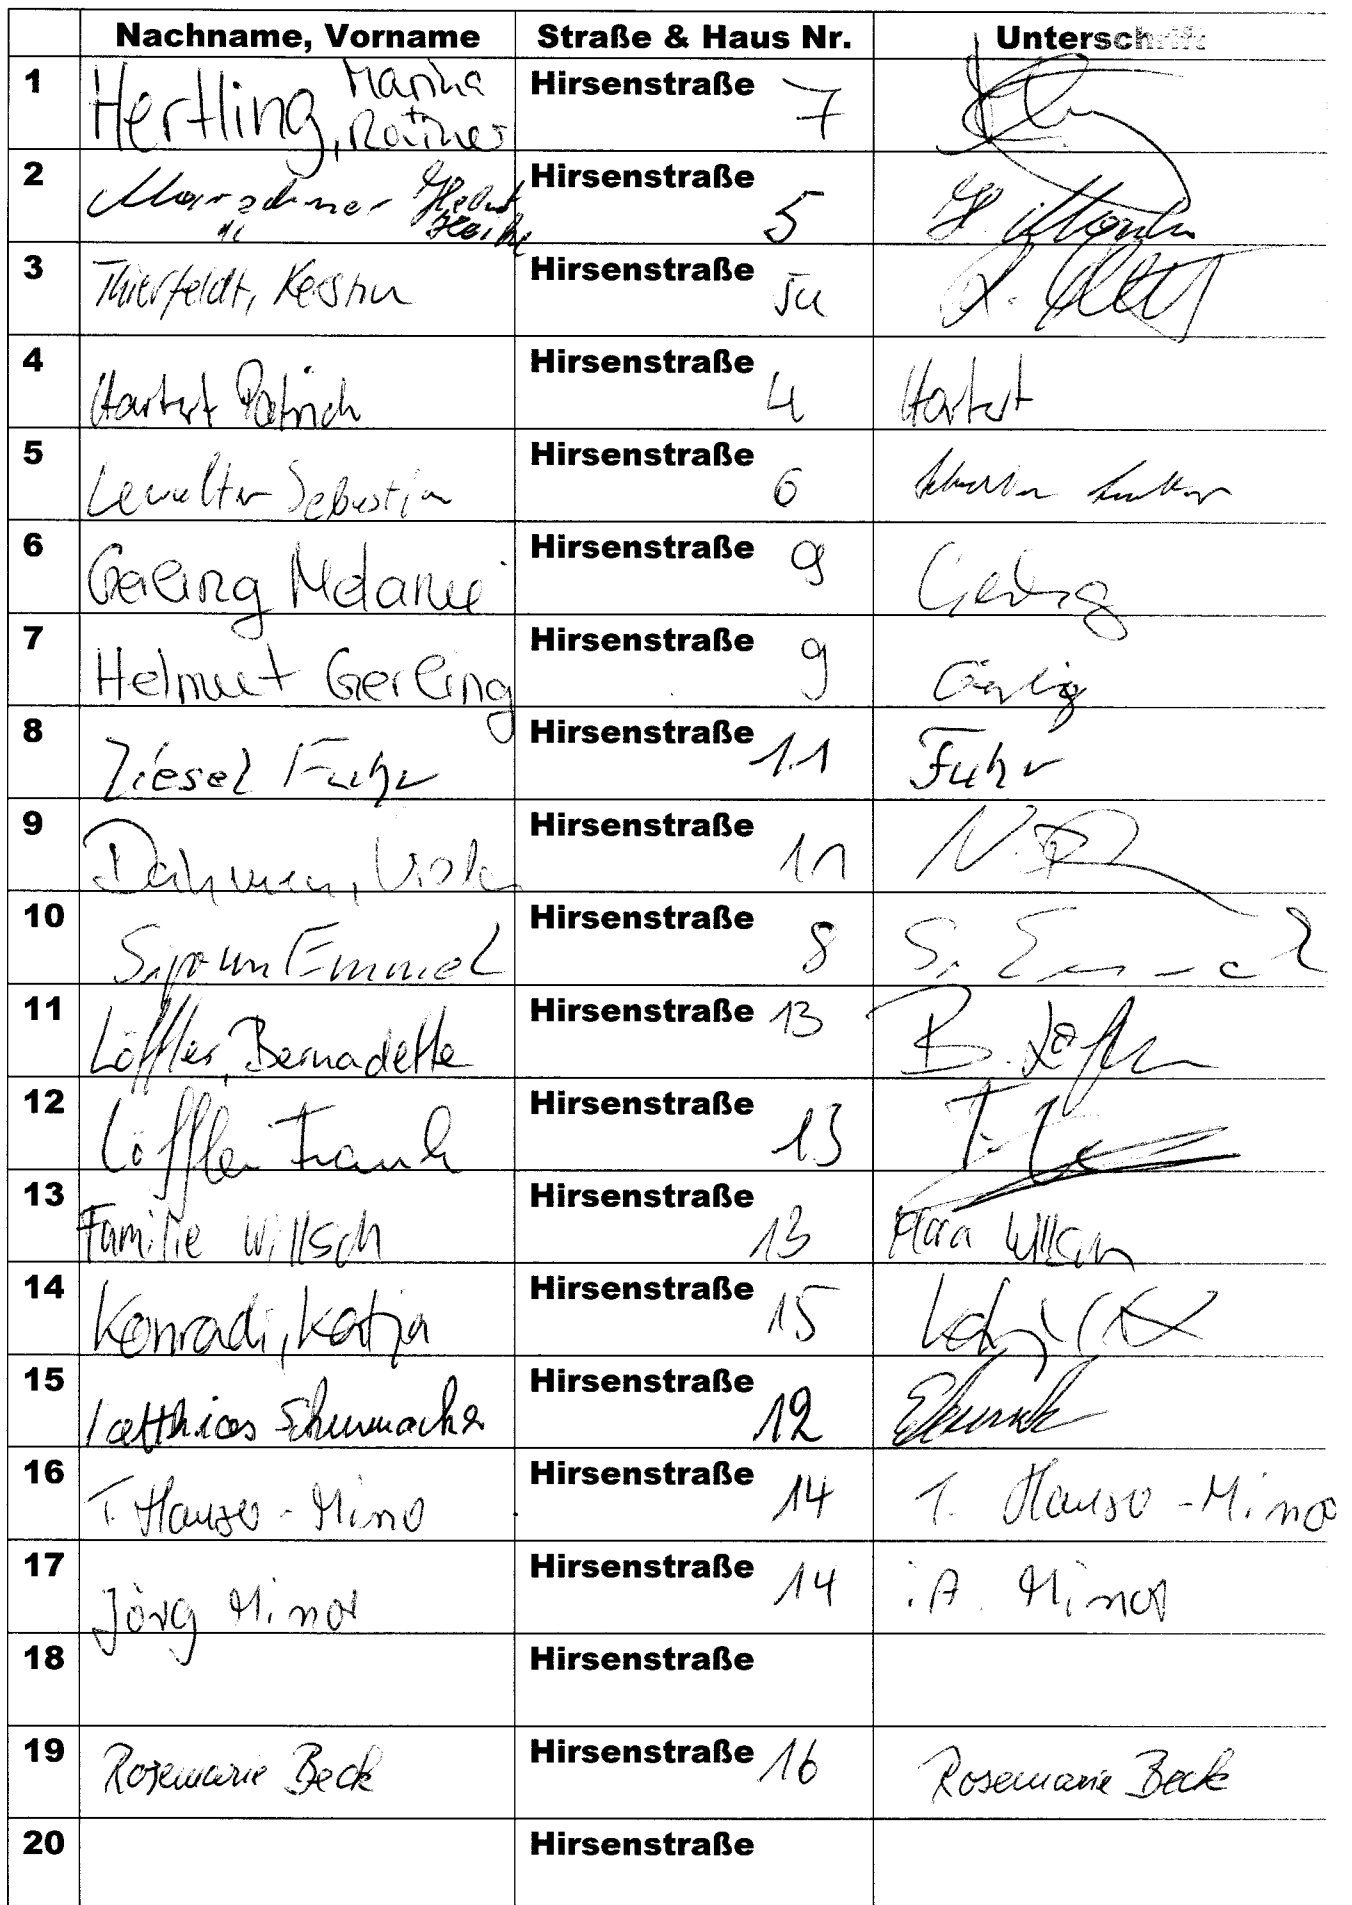 Nachname, Vorname Straße & Haus Nr. Unterschrift
1 Hertling, Marina Hirsenstraße 7
Rainer
2 Helmut Hirsenstraße 5
Heike
3 Thierfeldt, Kerstin Hirsenstraße 5a
4 Hartert Patrick Hirsenstraße 4 Hartert
5 Lewalter Sebastian Hirsenstraße 6
6 Gerling Melanie Hirsenstraße 9 Gerling
7 Helmut Gerling Hirsenstraße 9 Gerling
8 Liesel Fuhr Hirsenstraße 11 Fuhr
9 Dahmen, Viola Hirsenstraße 11
10 Emmel Hirsenstraße 8 S. Emmel
11 Löffler, Bernadette Hirsenstraße 13 B. Löffler
12 Löffler Frank Hirsenstraße 13
13 Familie Willsch Hirsenstraße 13 Willsch
14 Konradi, Katja Hirsenstraße 15
15 Matthias Schumacher Hirsenstraße 12
16 T. Hauser-Minor Hirsenstraße 14 T. Hauser-Minor
17 Jörg Minor Hirsenstraße 14 i.A. Minor
18 Hirsenstraße
19 Rosemarie Beck Hirsenstraße 16 Rosemarie Beck
20 Hirsenstraße